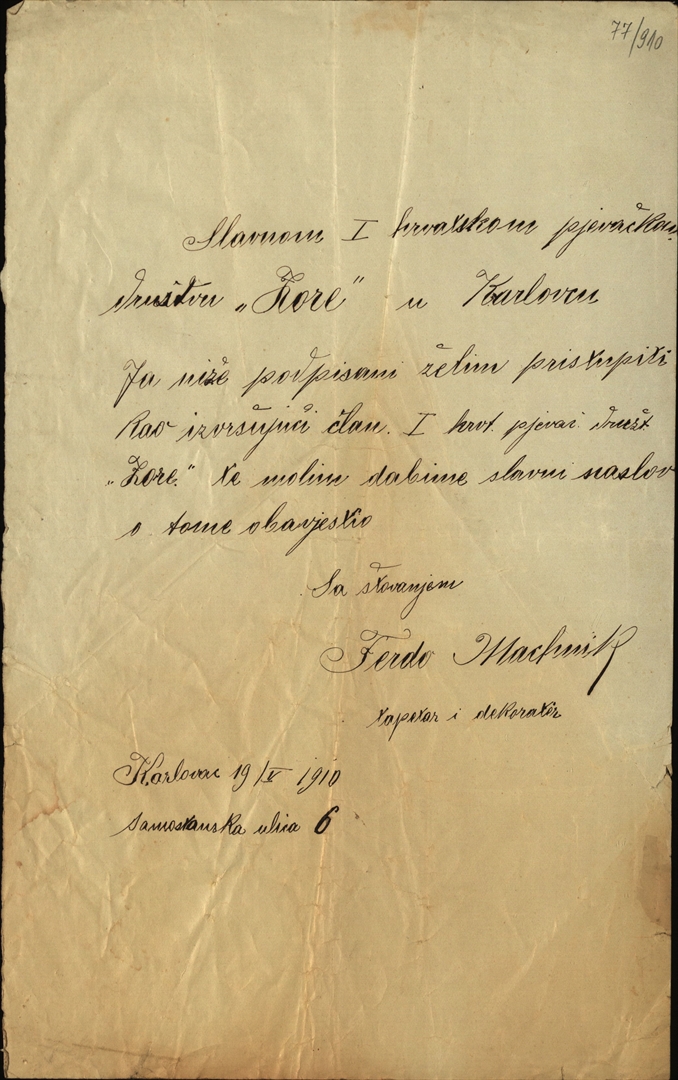 77/910
Slavnom I hrvatskom pjevačkom
družtvu „Zore" u Karlovcu
Ja niže podpisani želim pristupiti
kao izvršujući član. I hrvt. pjevač. družt
„Zore." te molim dabime slavni naslov
o tome obavjestio
Sa štovanjem
Ferdo Machnik
tapetar i dekorater
Karlovac 19/V 1910
Samostanska ulica 6